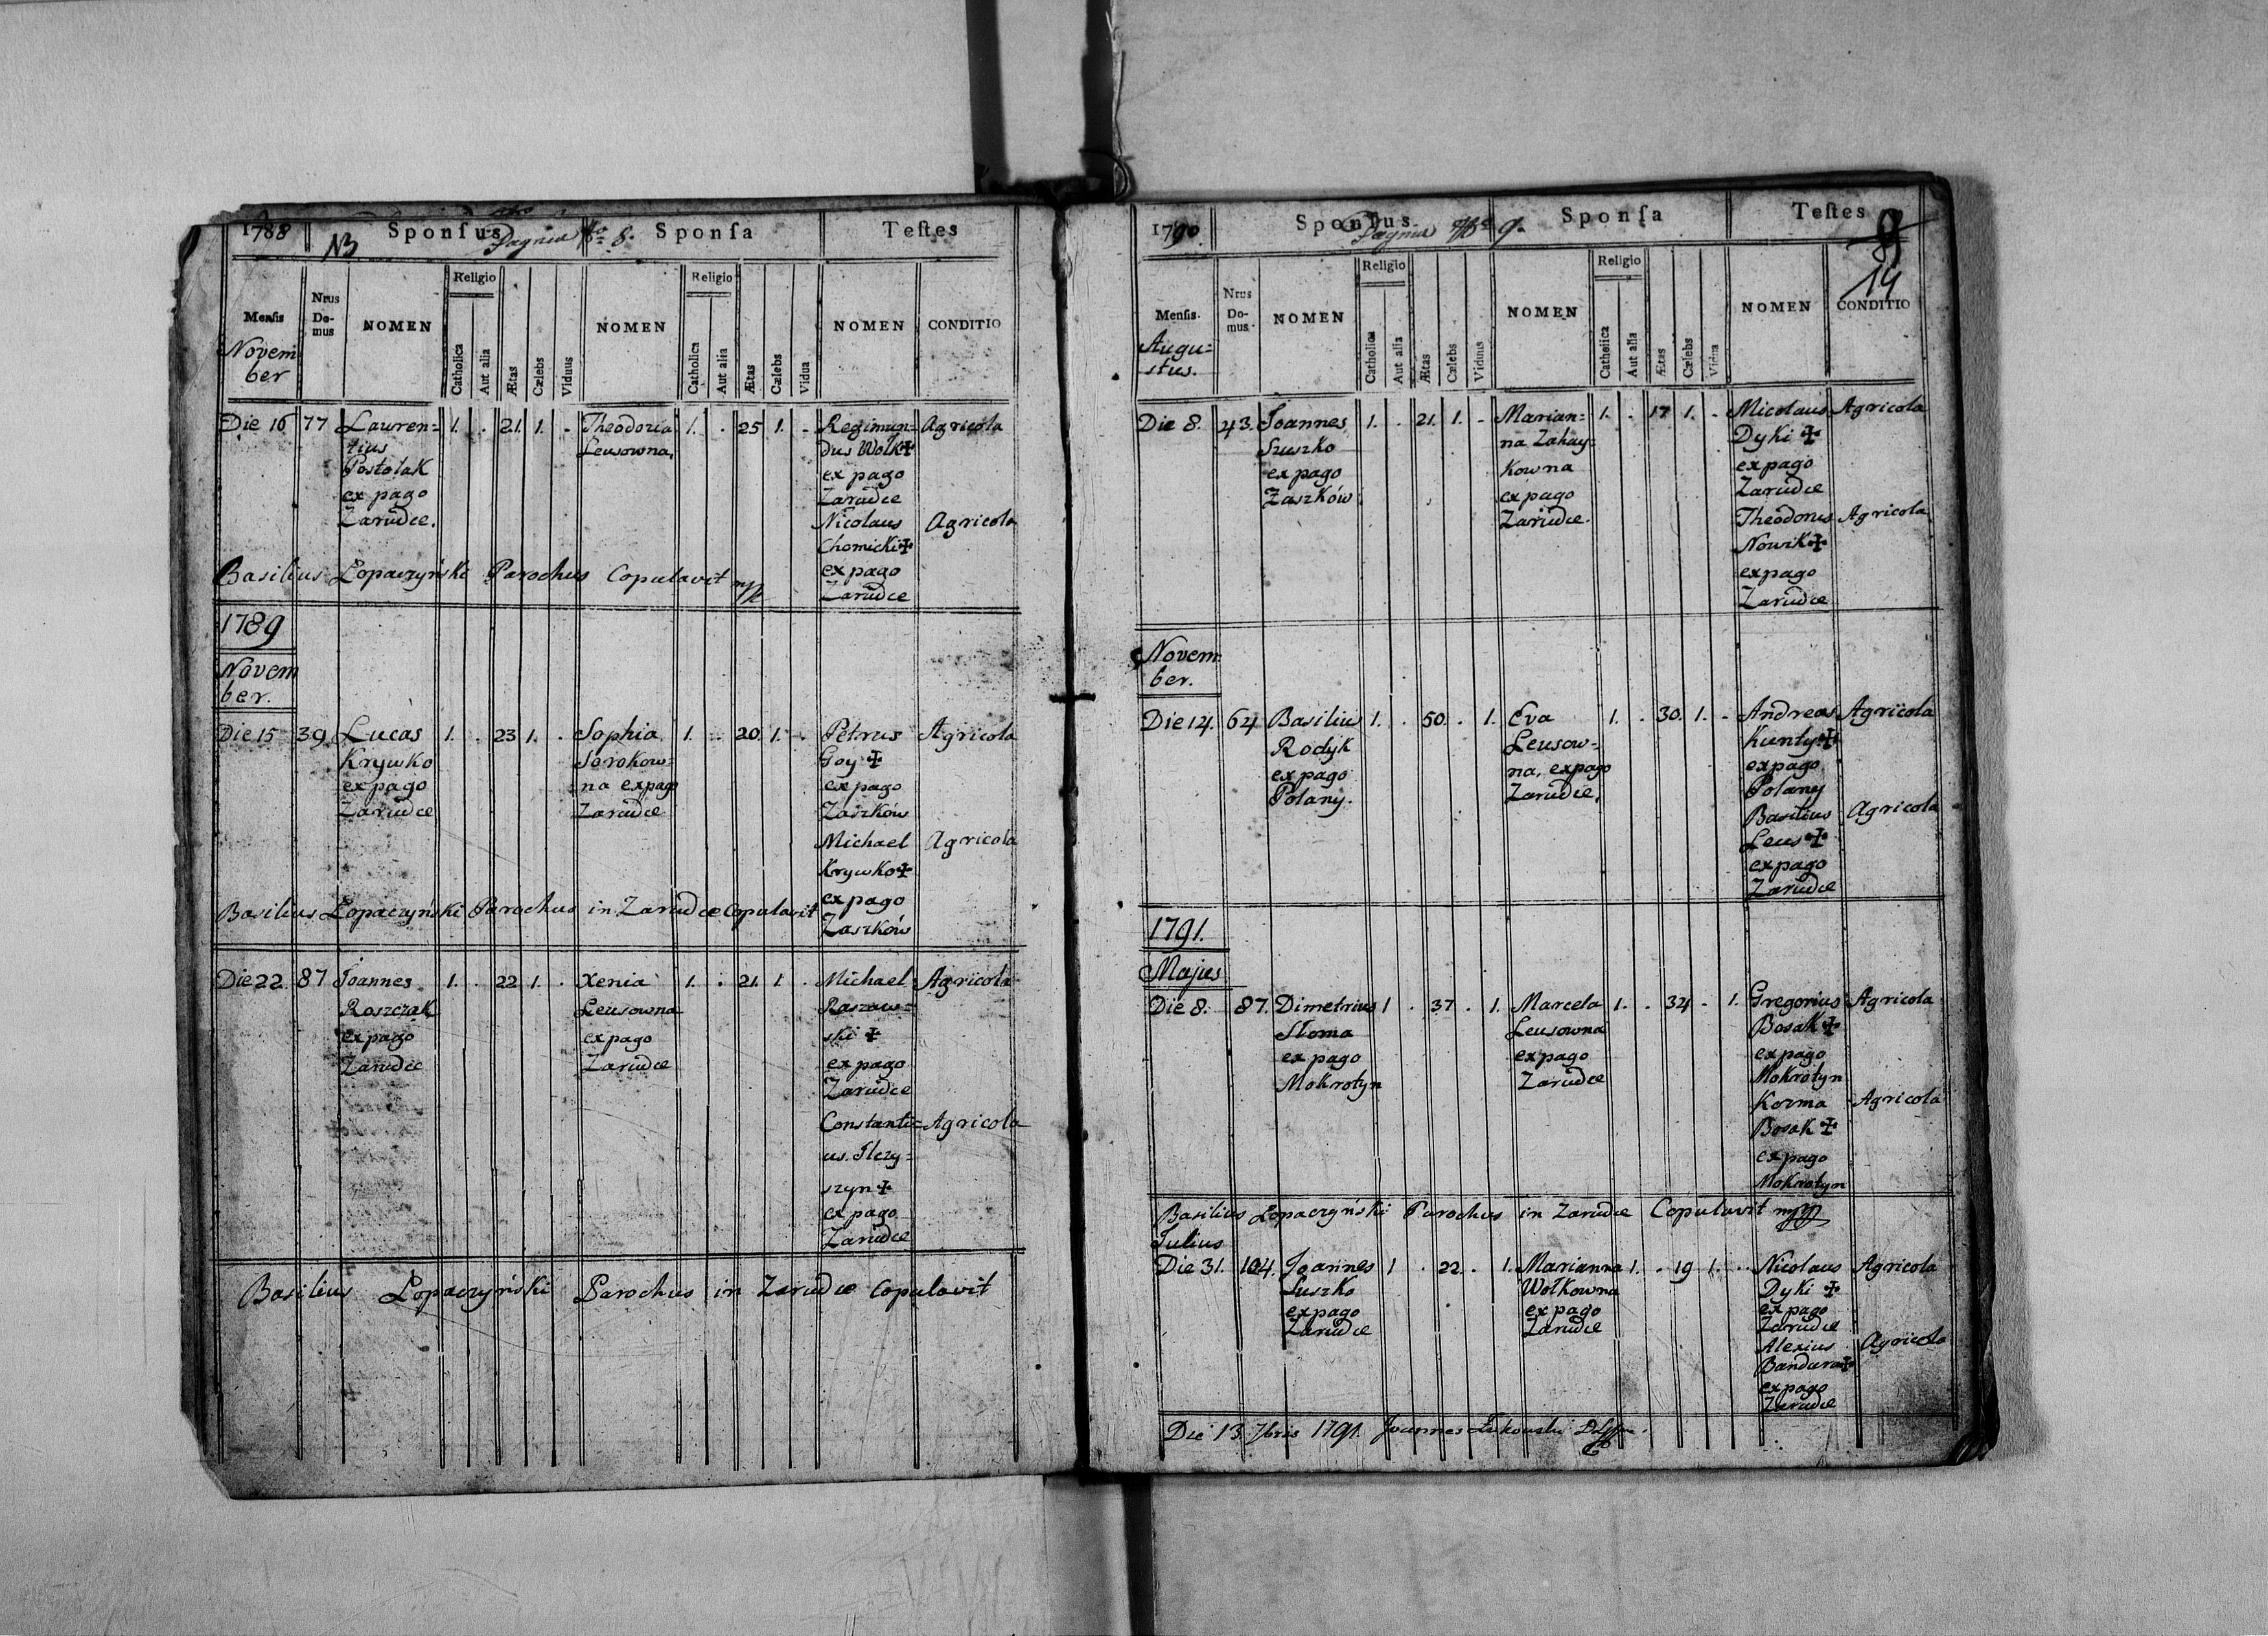 1788 Sponsus Pagina Nro 8. Sponsa Testes
N3
Religio Religio
Mensis Nrus Domus NOMEN Catholica Aut alia Ætas Cælebs Viduus NOMEN Catholica Aut alia Ætas Cælebs Vidua NOMEN CONDITIO
Novem
ber
Die 16 77 Lauren= 1. . 21. 1. - Theodoria 1. . 25 1. - Regimun= Agricola
tius Leusowna, dus Wolk✠
Postolak ex pago
ex pago Zarudce
Zarudce. Nicolaus Agricola
Chomicki✠
Basilius Łopaczyński Parochus Copulavit mp ex pago
Zarudce
1789
Novem
ber.
Die 15 39 Lucas 1. . 23 1. . Sophia 1. . 20. 1. . Petrus Agricola
Krywko Sorokow= Goy ✠
ex pago na ex pago ex pago
Zarudce Zarudce Zaszków
Michael Agricola
Krywko✠
Basilius Łopaczyński Parochus in Zarudce Copulavit ex pago
Zaszków
Die 22. 87 Joannes 1. . 22 1. . Xenia 1. . 21. 1. . Michael Agricola
Roszczak Leusowna Raszaw=
ex pago ex pago ski ✠
Zarudce Zarudce ex pago
Zarudce
Constanti= Agricola
us. Slezy=
szyn ✠
ex pago
Zarudce
Basilius Łopaczyński Parochus in Zarudce Copulavit
1790. Sponsus. Pagina Nro 9. Sponsa Testes 9
14
Religio Religio
Mensis. Nrus Domus. NOMEN Catholica Aut alia Ætas Cælebs Viduus NOMEN Catholica Aut alia Ætas Cælebs Vidua NOMEN CONDITIO
Augu=
stus.
Die 8. 43. Joannes 1. . 21. 1. - Marian= 1. . 17 1. - Nicolaus Agricola
Szuszko na Zahay= Dyki ✠
ex pago kowna ex pago
Zaszków ex pago Zarudce
Zarudce. Theodorus Agricola
Nowik✠
ex pago
Zarudce
Novem
ber.
Die 14. 64 Basilius 1. . 50. . 1. Eva 1. . 30. 1. - Andreas Agricola
Rodyk Leusow= Kunty✠
ex pago na, ex pago ex pago
Polany. Zarudce, Polany
Basilius Agricola
Leus ✠
ex pago
Zarudce
1791.
Majus
Die 8. 87. Dimetrius 1 . 37 . 1. Marcela 1. . 34 - 1. Gregorius Agricola
Słoma Leusowna Bosak ✠
ex pago ex pago ex pago
Mokrotyn Zarudce Mokrotyn
Kozma Agricola
Bosak ✠
ex pago
Mokrotyn
Basilius Łopaczyński Parochus in Zarudce Copulavit mpp
Julius
Die 31. 104. Joannes 1 . 22. . 1. Marianna 1. . 19 1. . Nicolaus Agricola
Suszko Wołkowna Dyki ✠
ex pago ex pago ex pago
Zarudce Zarudce Zarudce
Alexius Agricola
Bandura✠
ex pago
Zarudce
Die 13. 7bris 1791. Joannes